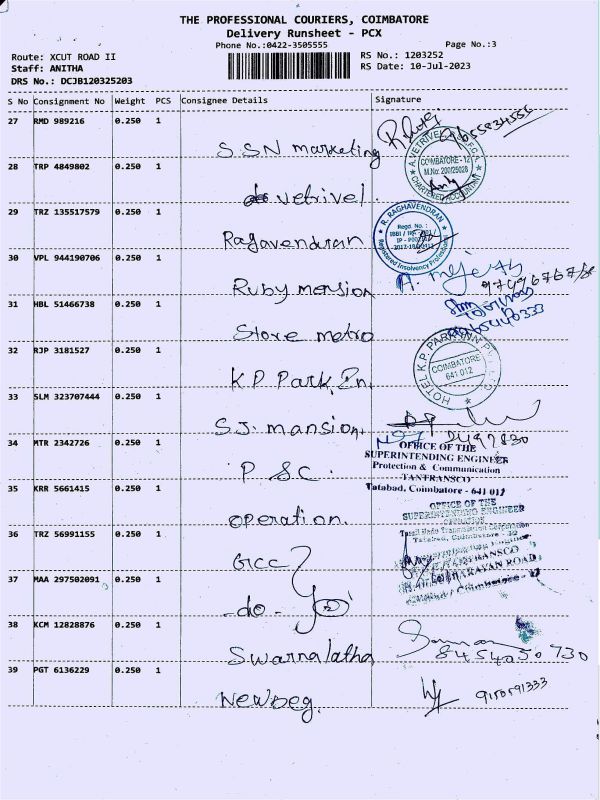 THE PROFESSIONAL COURIERS, COIMBATORE
Delivery Runsheet - PCX
Phone No.:0422-3505555
Page No.:3
Route: XCUT ROAD II
RS No.: 1203252
Staff: ANITHA
RS Date: 10-Jul-2023
DRS No.: DCJB120325203
S No Consignment No Weight PCS Consignee Details Signature
27 RMD 989216 0.250 1
S.SN marketing
28 TRP 4849802 0.250 1
COIMBATORE - 12
CHARTERED ACCOUNTANT
vetrivel
29 TRZ 135517579 0.250 1
R. RAGHAVENDRAN
Regd. No.:
Registered Insolvency Professional
Ragavendran
30 VPL 944190706 0.250 1
Ruby mansion
31 HBL 51466738 0.250 1
Store metro
32 RJP 3181527 0.250 1
HOTEL K.P. PARK INN
COIMBATORE
641 012
K.P Park In.
33 SLM 323707444 0.250 1
S.J. mansion
34 MTR 2342726 0.250 1
OFFICE OF THE
SUPERINTENDING ENGINEER
Protection & Communication
TANTRANSCO
Tatabad, Coimbatore - 641 012
P.S.C.
35 KRR 5661415 0.250 1
OFFICE OF THE
SUPERINTENDING ENGINEER
OPERATION
operation.
36 TRZ 56991155 0.250 1
GCC
37 MAA 297502091 0.250 1
- do -
38 KCM 12828876 0.250 1
Swarnalatha
39 PGT 6136229 0.250 1
9150591333
Newbeg.